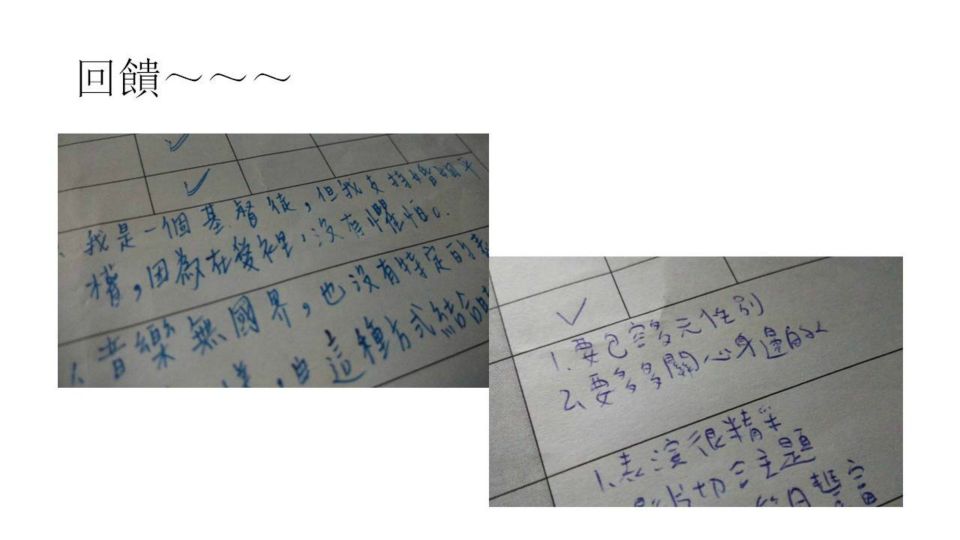 回饋～～～
我是一個基督徒，但我支持婚姻平
權，因為在愛裡，沒有懼怕。
音樂無國界，也沒有特定的表
，由這種方式結合
1.要包容多元性別
2.要多多關心身邊的人
1.表演很精采
影片切合主題